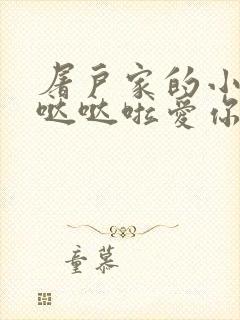 屠户家的小
哒哒啦爱你
童慕